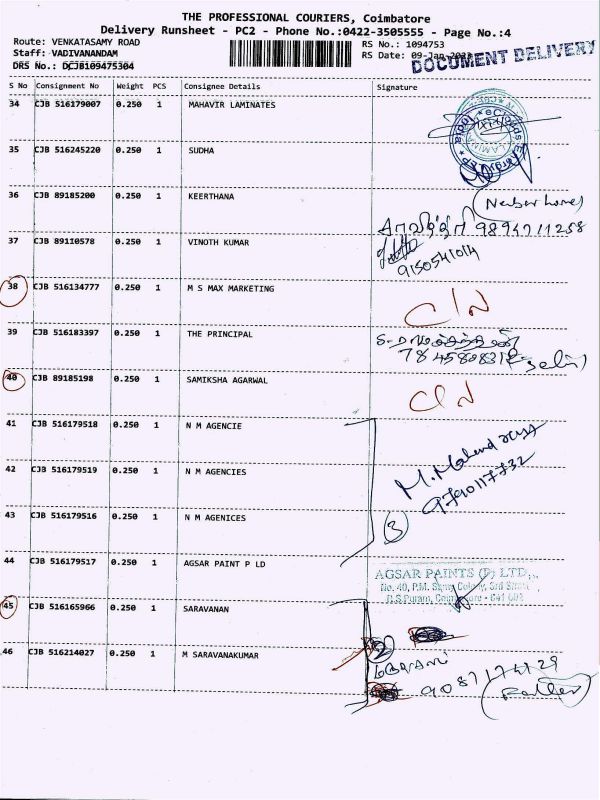 THE PROFESSIONAL COURIERS, Coimbatore
Delivery Runsheet - PC2 - Phone No.:0422-3505555 - Page No.:4
Route: VENKATASAMY ROAD
Staff: VADIVANANDAM
DRS No.: DCJB109475304
RS No.: 1094753
RS Date: 09-Jan-2023
DOCUMENT DELIVERY
S No Consignment No Weight PCS Consignee Details Signature
34 CJB 516179007 0.250 1 MAHAVIR LAMINATES
35 CJB 516245220 0.250 1 SUDHA
36 CJB 89185200 0.250 1 KEERTHANA
9894711258
37 CJB 89110578 0.250 1 VINOTH KUMAR
9150541014
38 CJB 516134777 0.250 1 M S MAX MARKETING
39 CJB 516183397 0.250 1 THE PRINCIPAL
7845808312
40 CJB 89185198 0.250 1 SAMIKSHA AGARWAL
41 CJB 516179518 0.250 1 N M AGENCIE
42 CJB 516179519 0.250 1 N M AGENCIES
9790117732
43 CJB 516179516 0.250 1 N M AGENICES
3
44 CJB 516179517 0.250 1 AGSAR PAINT P LD
AGSAR PAINTS (P) LTD.,
45 CJB 516165966 0.250 1 SARAVANAN
46 CJB 516214027 0.250 1 M SARAVANAKUMAR
2
9087174129
(Father)